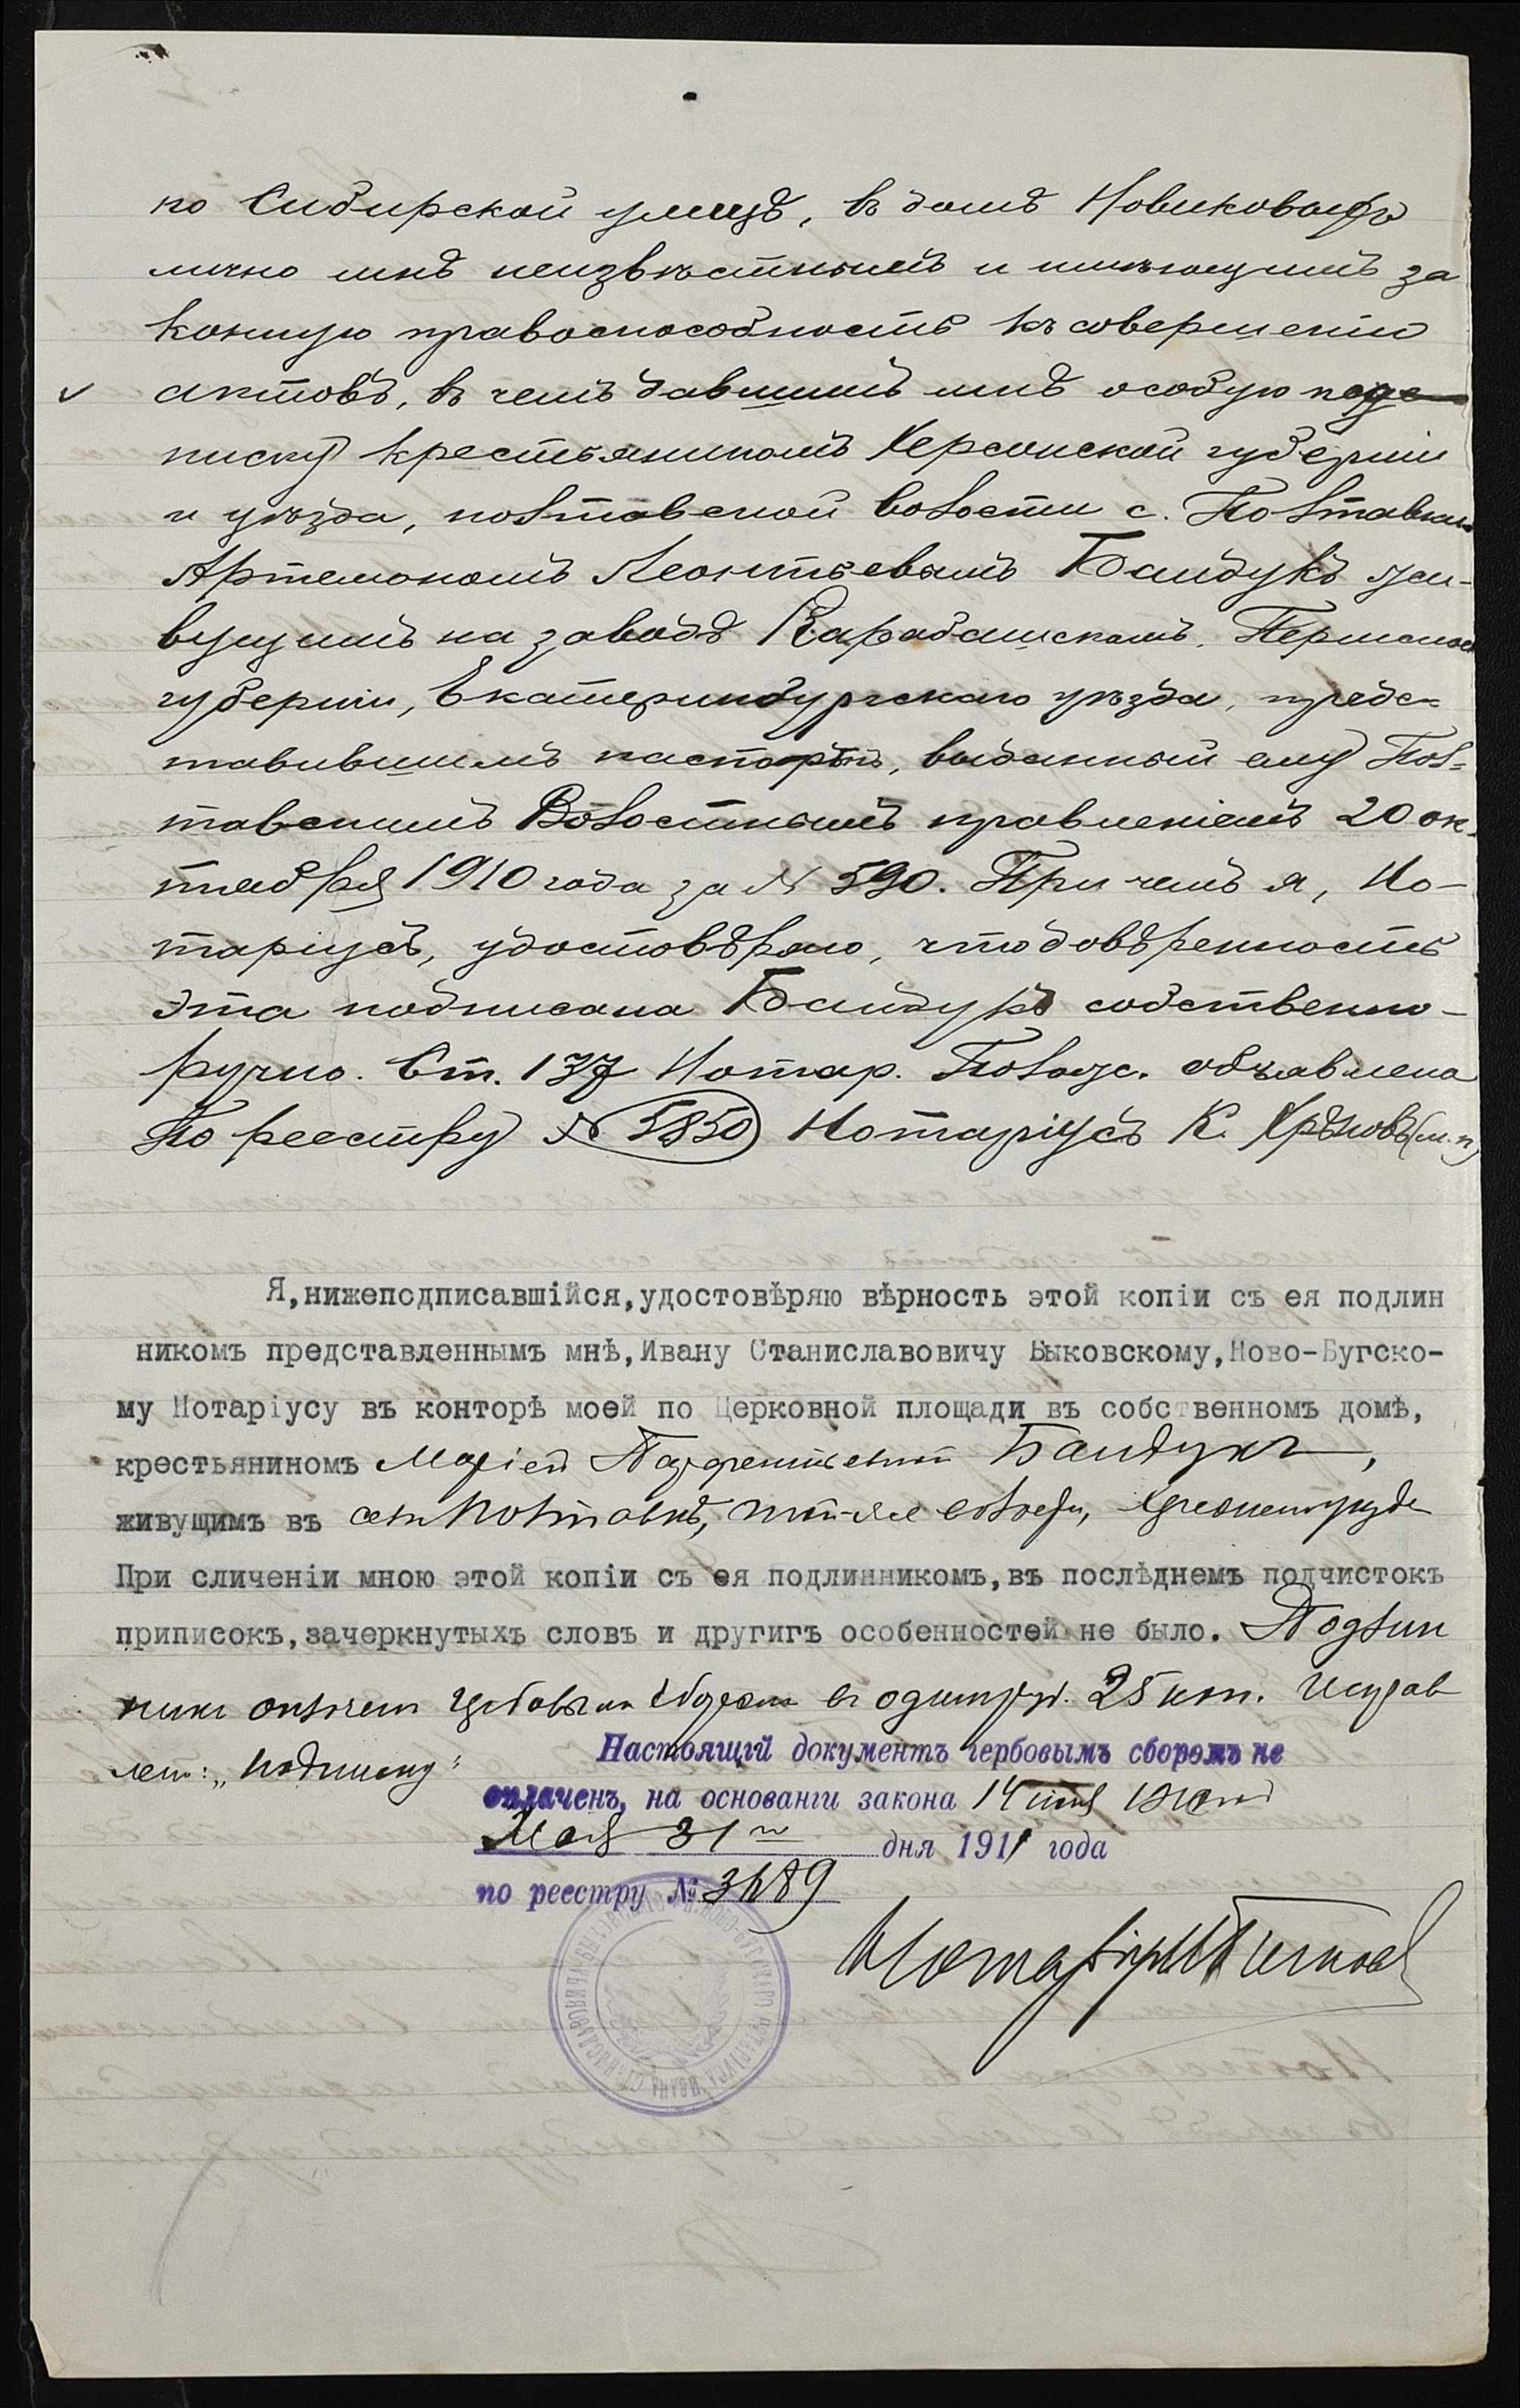 по Сибирской улицѣ, въ домѣ Новиковыхъ
лично мнѣ неизвѣстнымъ и имѣющимъ за
конную правоспособность къ совершенію
актовъ, въ чемъ давшимъ мнѣ особую подп
писку крестьяниномъ Херсонской губерніи
и уѣзда, полтавской волости с. Полтавки
Артемономъ Леонтьевымъ Бандукъ жи-
вущимъ на заводѣ Карабашскомъ, Пермской
губерніи, Екатеринбургскаго уѣзда, предс-
тавившимъ паспортъ, выданный ему Пол-
тавскимъ Волостнымъ правленіемъ 20 ок-
тября 1910 года за № 590. При чемъ я, Но-
таріусъ, удостовѣряю, что довѣренность
эта подписана Бандукъ собственно-
ручно. Ст. 137 Нотар. Полож. объявлена
По реестру № 5850 Нотаріусъ К. Хрѣновъ (м.п)
Я,нижеподписавшійся,удостовѣряю вѣрность этой копіи съ ея подлин
никомъ представленнымъ мнѣ,Ивану Станиславовичу Быковскому,Ново-Бугско-
му Нотаріусу въ конторѣ моей по Церковной площади въ собственномъ домѣ,
крестьяниномъ Маріей Парфентьевной Бандукъ,
живущимъ въ селѣ Полтавкѣ,
При сличеніи мною этой копіи съ ея подлинникомъ,въ послѣднемъ подчистокъ
приписокъ,зачеркнутыхъ словъ и другигъ особенностей не было. Подлин
никъ оплаченъ гербовымъ сборомъ въ одинъ руб. 25 коп. Исправ
лен: „подписку"
Настоящій документъ гербовымъ сборомъ не
оплаченъ, на основаніи закона 14 іюня 1910
Мая 31 дня 1911 года
по реестру № 3689
Нотаріусъ Быковскій